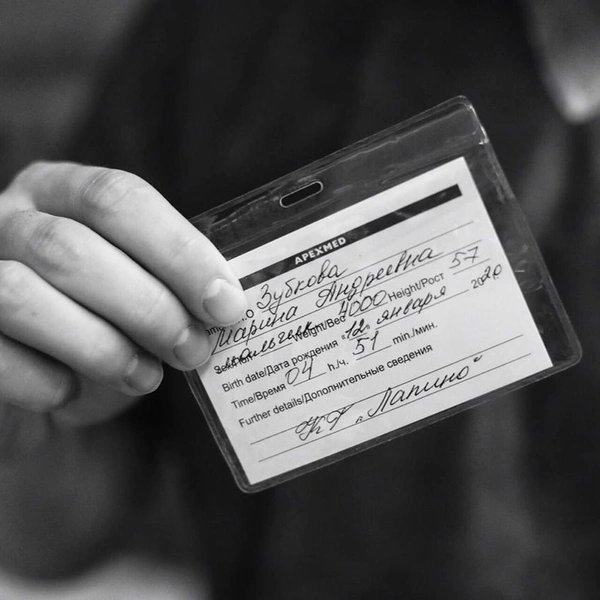 APEXMED
Зубкова
Марина Андреевна
мальчик Weight/Вес 4000 Height/Рост 57
Birth date/Дата рождения "12" января 2020
Time/Время 04 h./ч. 51 min./мин.
Further details/Дополнительные сведения
КГ "Лапино"